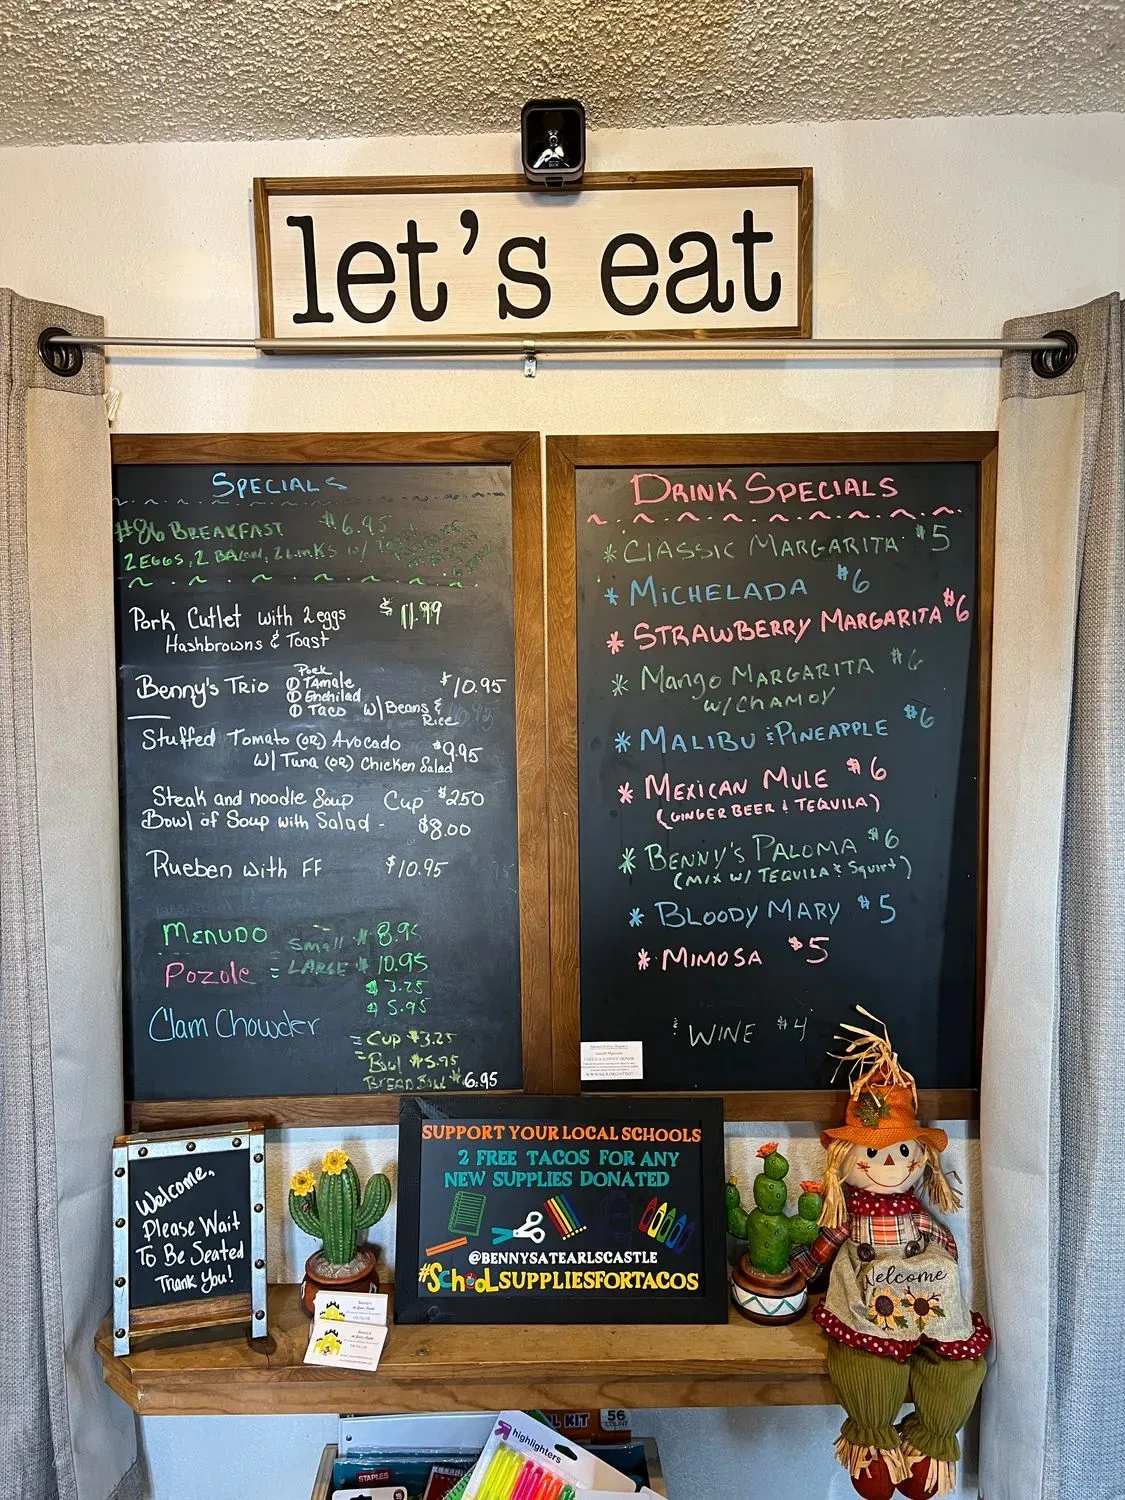 let's eat
SPECIALS
#86 BREAKFAST $6.95
2 EGGS, 2 BACON, 2 LINKS W/
Pork Cutlet with 2 eggs $11.99
Hashbrowns & Toast
Benny's Trio $10.95
Pork
① Tamale
① Enchilad
① Taco W/ Beans &
Rice
Stuffed Tomato (OR) Avocado $9.95
W/ Tuna (OR) Chicken Salad
Steak and noodle Soup Cup $2.50
Bowl of Soup with Salad - $8.00
Rueben with FF $10.95
MENUDO Small $8.95
Pozole = LARGE $10.95
$3.25
$5.95
Clam Chowder
= Cup $3.25
= Bowl $5.95
BREAD Bowl $6.95
DRINK SPECIALS
* CLASSIC MARGARITA $5
* MICHELADA $6
* STRAWBERRY MARGARITA $6
* Mango MARGARITA $6
W/ CHAMOY
* MALIBU & PINEAPPLE $6
* MEXICAN MULE $6
(GINGER BEER & TEQUILA)
* BENNY'S PALOMA $6
(MIX W/ TEQUILA & Squirt)
* BLOODY MARY $5
* MIMOSA $5
WINE $4
Welcome..
Please Wait
To Be Seated
Thank You!
SUPPORT YOUR LOCAL SCHOOLS
2 FREE TACOS FOR ANY
NEW SUPPLIES DONATED
@BENNYSATEARLSCASTLE
#SCHOOLSUPPLIESFORTACOS
Welcome
KIT
56
COUNT
highlighters
STAPLES